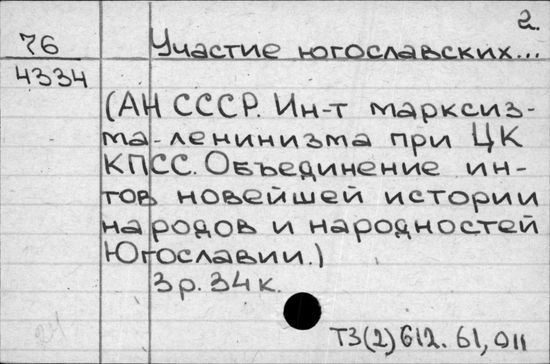 2.
76
4334
Участие югославских...
(АН СССР. Ин-т марксиз-
ма-ленинизма при ЦК
КПСС. Объединение ин-
тов новейшей истории
народов и народностей
Югославии.)
3 р. 34 к.
Т3(2)612.61,011